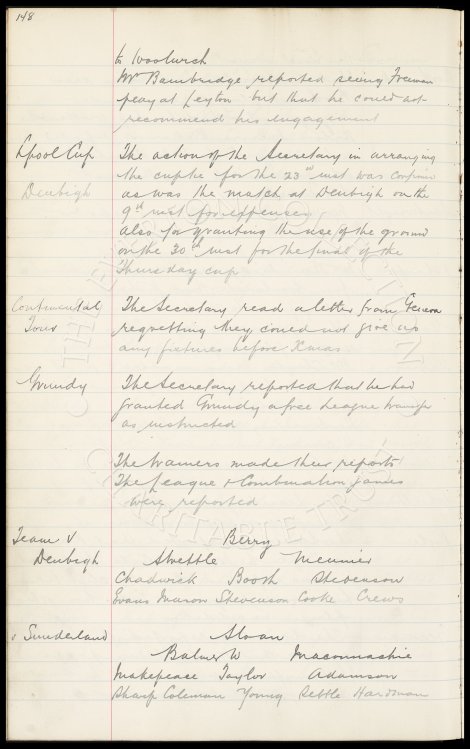 148
to Woolwich
Mr Bainbridge reported seeing Freeman
play at Leyton but that he could not
recommend his engagement
Lpool Cup The action of the Secretary in arranging
the cup tie for the 23rd inst was confirmed
Denbigh as was the match at Denbigh on the
9th inst for expenses
also for granting the use of the ground
on the 30th inst for the final of the
Thursday cup
Continental The Secretary read a letter from Geneva
Tour regretting they could not give up
any fixtures before Xmas
Grundy The Secretary reported that he had
granted Grundy a free League transfer
as instructed
The trainers made their reports
The League & Combination games
were reported
Team v Berry
Denbigh Strettle Meunier
Chadwick Booth Stevenson
Evans Stevenson Cooke Crews
v Sunderland Sloan
Balmer W Maconnachie
Makepeace Taylor Adamson
Sharp Coleman Young Settle Hardman
THE EVERTON COLLECTION
CHARITABLE TRUST